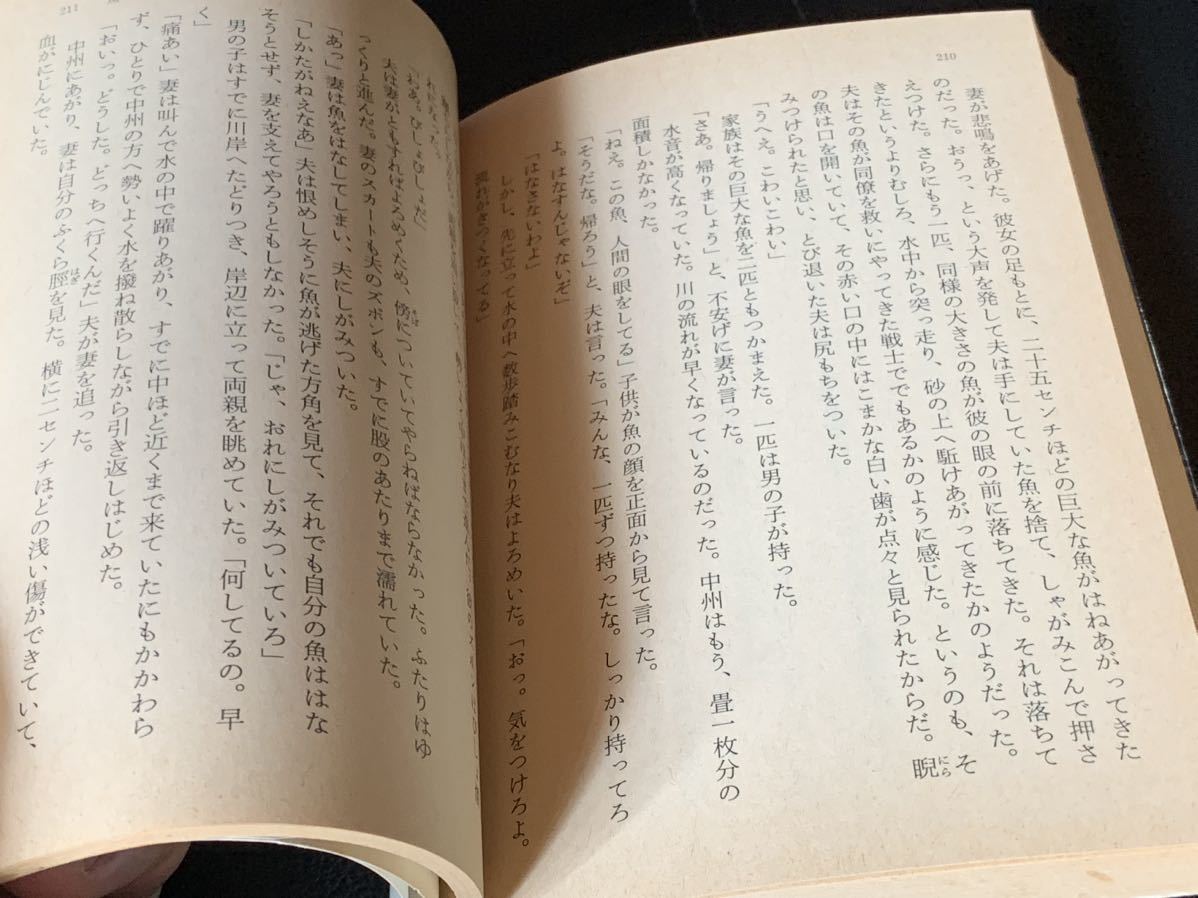 210
妻が悲鳴をあげた。彼女の足もとに、二十五センチほどの巨大な魚がはねあがってきた
のだった。おうっ、という大声を発して夫は手にしていた魚を捨て、しゃがみこんで押さ
えつけた。さらにもう一匹、同様の大きさの魚が彼の眼の前に落ちてきた。それは落ちて
きたというよりむしろ、水中から突っ走り、砂の上へ駈けあがってきたかのようだった。
夫はその魚が同僚を救いにやってきた戦士ででもあるかのように感じた。というのも、そ
の魚は口を開いていて、その赤い口の中にはこまかな白い歯が点々と見られたからだ。睨
にら
みつけられたと思い、とび退いた夫は尻もちをついた。
「うへえ。こわいこわい」
家族はその巨大な魚を二匹ともつかまえた。一匹は男の子が持った。
「さあ。帰りましょう」と、不安げに妻が言った。
水音が高くなっていた。川の流れが早くなっているのだった。中州はもう、畳一枚分の
面積しかなかった。
「ねえ。この魚、人間の眼をしてる」子供が魚の顔を正面から見て言った。
「そうだな。帰ろう」と、夫は言った。「みんな、一匹ずつ持ったな。しっかり持ってろ
よ。はなすんじゃないぞ」
「はなさないわよ」
しかし、先に立って水の中へ数歩踏みこむなり夫はよろめいた。「おっ。気をつけろよ。
流れがきつくなってる」
211
「わあ。びしょびしょだ」
夫は妻がともすればよろめくため、傍についていてやらねばならなかった。ふたりはゆ
そば
っくりと進んだ。妻のスカートも夫のズボンも、すでに股のあたりまで濡れていた。
「あっ」妻は魚をはなしてしまい、夫にしがみついた。
「しかたがねえなあ」夫は恨めしそうに魚が逃げた方角を見て、それでも自分の魚ははな
そうとせず、妻を支えてやろうともしなかった。「じゃ、おれにしがみついていろ」
男の子はすでに川岸へたどりつき、岸辺に立って両親を眺めていた。「何してるの。早
く」
「痛あい」妻は叫んで水の中で躍りあがり、すでに中ほど近くまで来ていたにもかかわら
ず、ひとりで中州の方へ勢いよく水を撥ね散らしながら引き返しはじめた。
「おいっ。どうした。どっちへ行くんだ」夫が妻を追った。
中州にあがり、妻は自分のふくら脛を見た。横に二センチほどの浅い傷ができていて、
はぎ
血がにじんでいた。